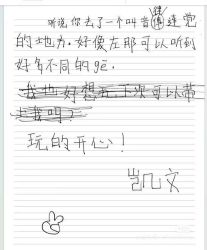 听说你去了一个叫音樂建党
的地方.好像在那可以听到
好多不同的gē.
我也好想去下次可以带
上我吗?
玩的开心!
凯文